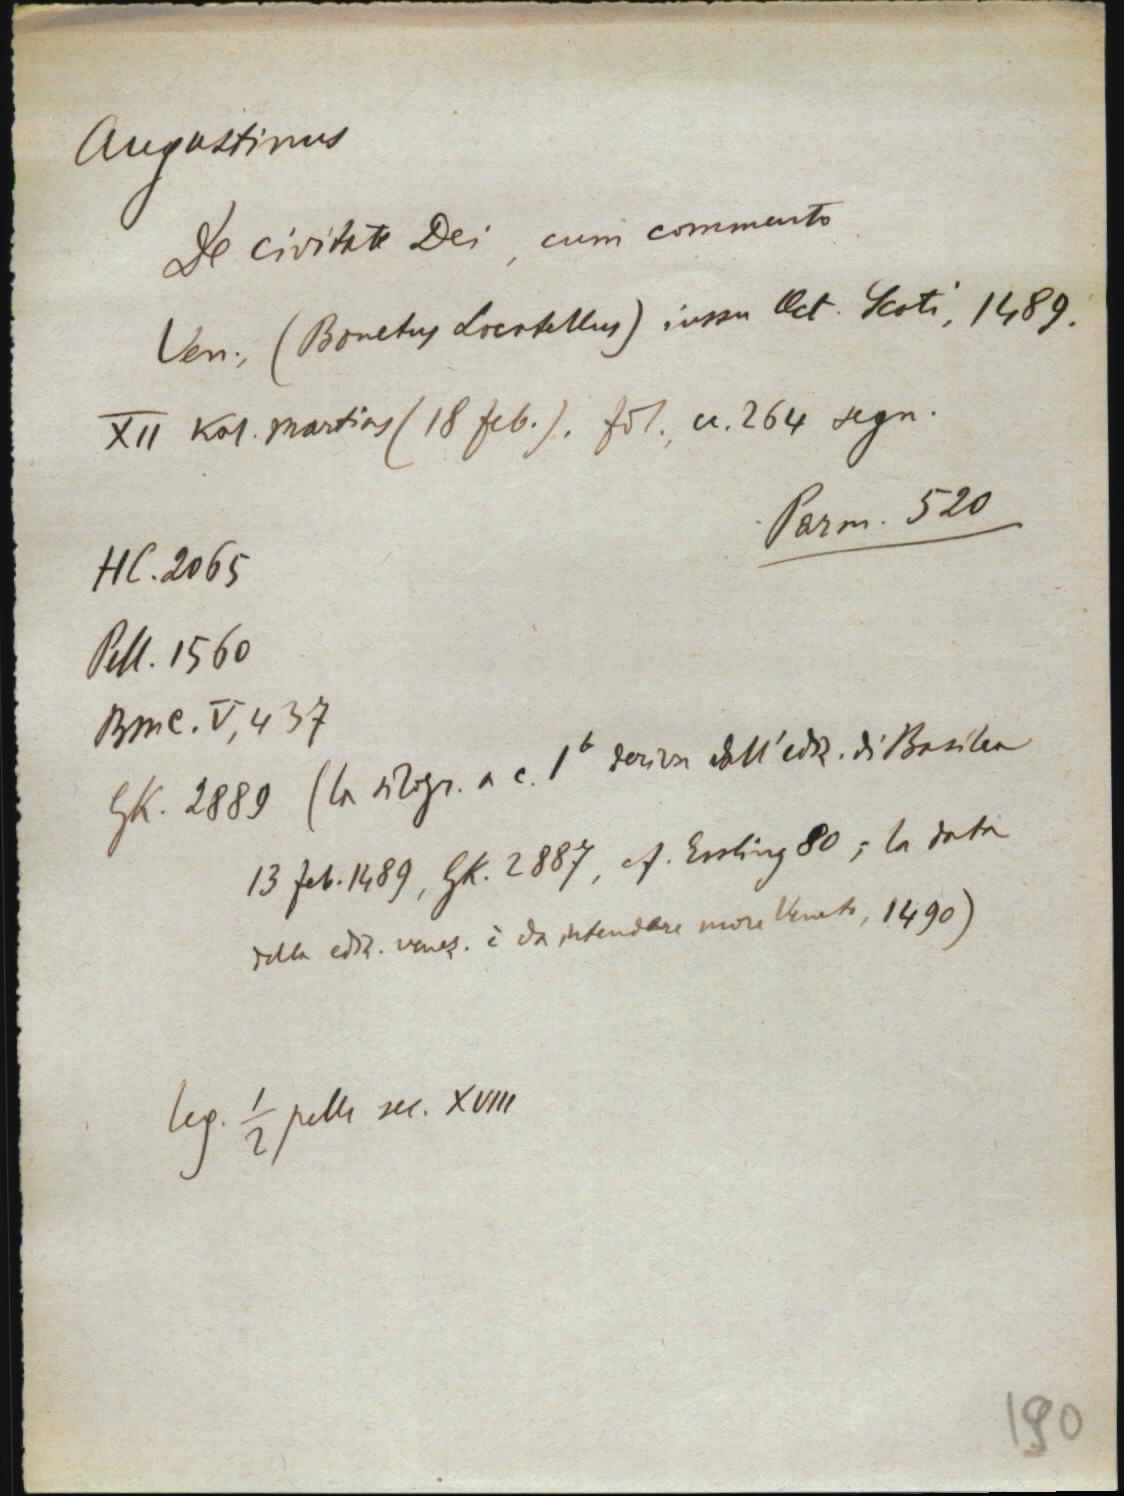 Augustinus
De civitate Dei, cum commento
Ven., (Bonetus Locatellus) iussu Oct. Scoti, 1489.
XII Kal. martias (18 feb.). fol., cc. 264 segn.
Parm. 520
HC. 2065
Pell. 1560
BMC. V, 437
GK. 2889 (la silogr. a c. 1b deriva dall'ediz. di Basilea
13 feb. 1489, GK. 2887, cf. Essling 80; la data
della ediz. venez. è da intendere more Veneto, 1490)
leg. 1/2 pelle sec. XVIII
190